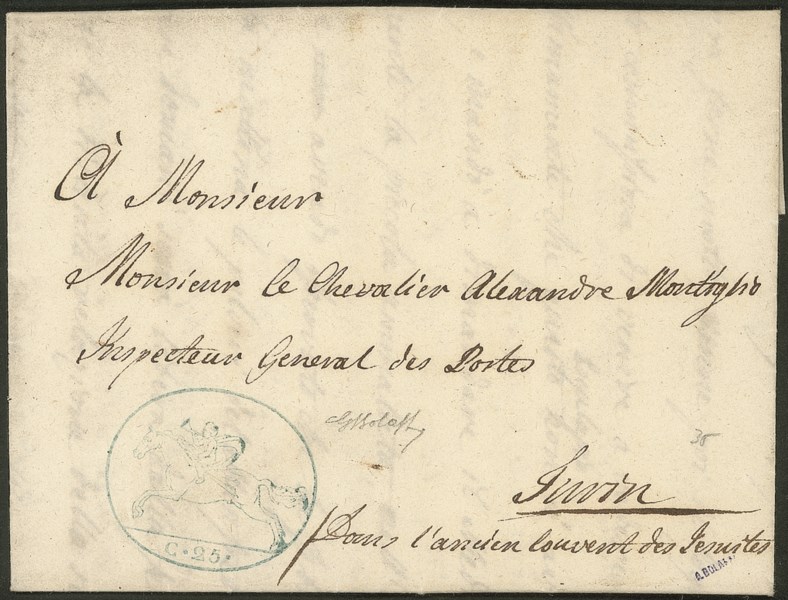 À Monsieur
Monsieur le Chevalier Alexandre Montiglio
Inspecteur General des Postes
GBolaffi
35
Turin
Dans l'ancien Couvent des Jesuites
C. 25.
A. BOLAFFI